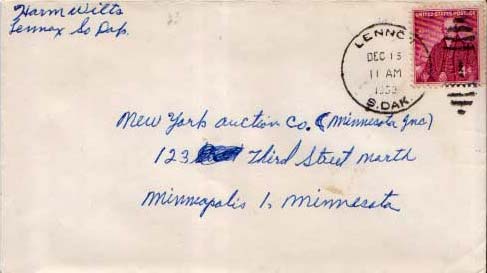 Harm Wilts
Lennox So Dak.
LENNOX
DEC 15
11 AM
S.DAK.
UNITED STATES POSTAGE
4¢
New York Auction Co. (Minnesota Inc)
123 Third Street North
Minneapolis 1, Minnesota